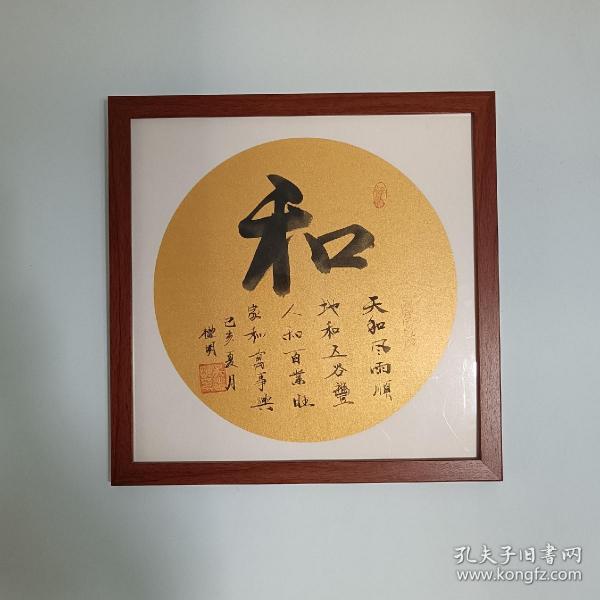 和
天和风雨順
地和五谷豐
人和百業旺
家和萬事興
己亥夏月
孔夫子旧書网
www.kongfz.com